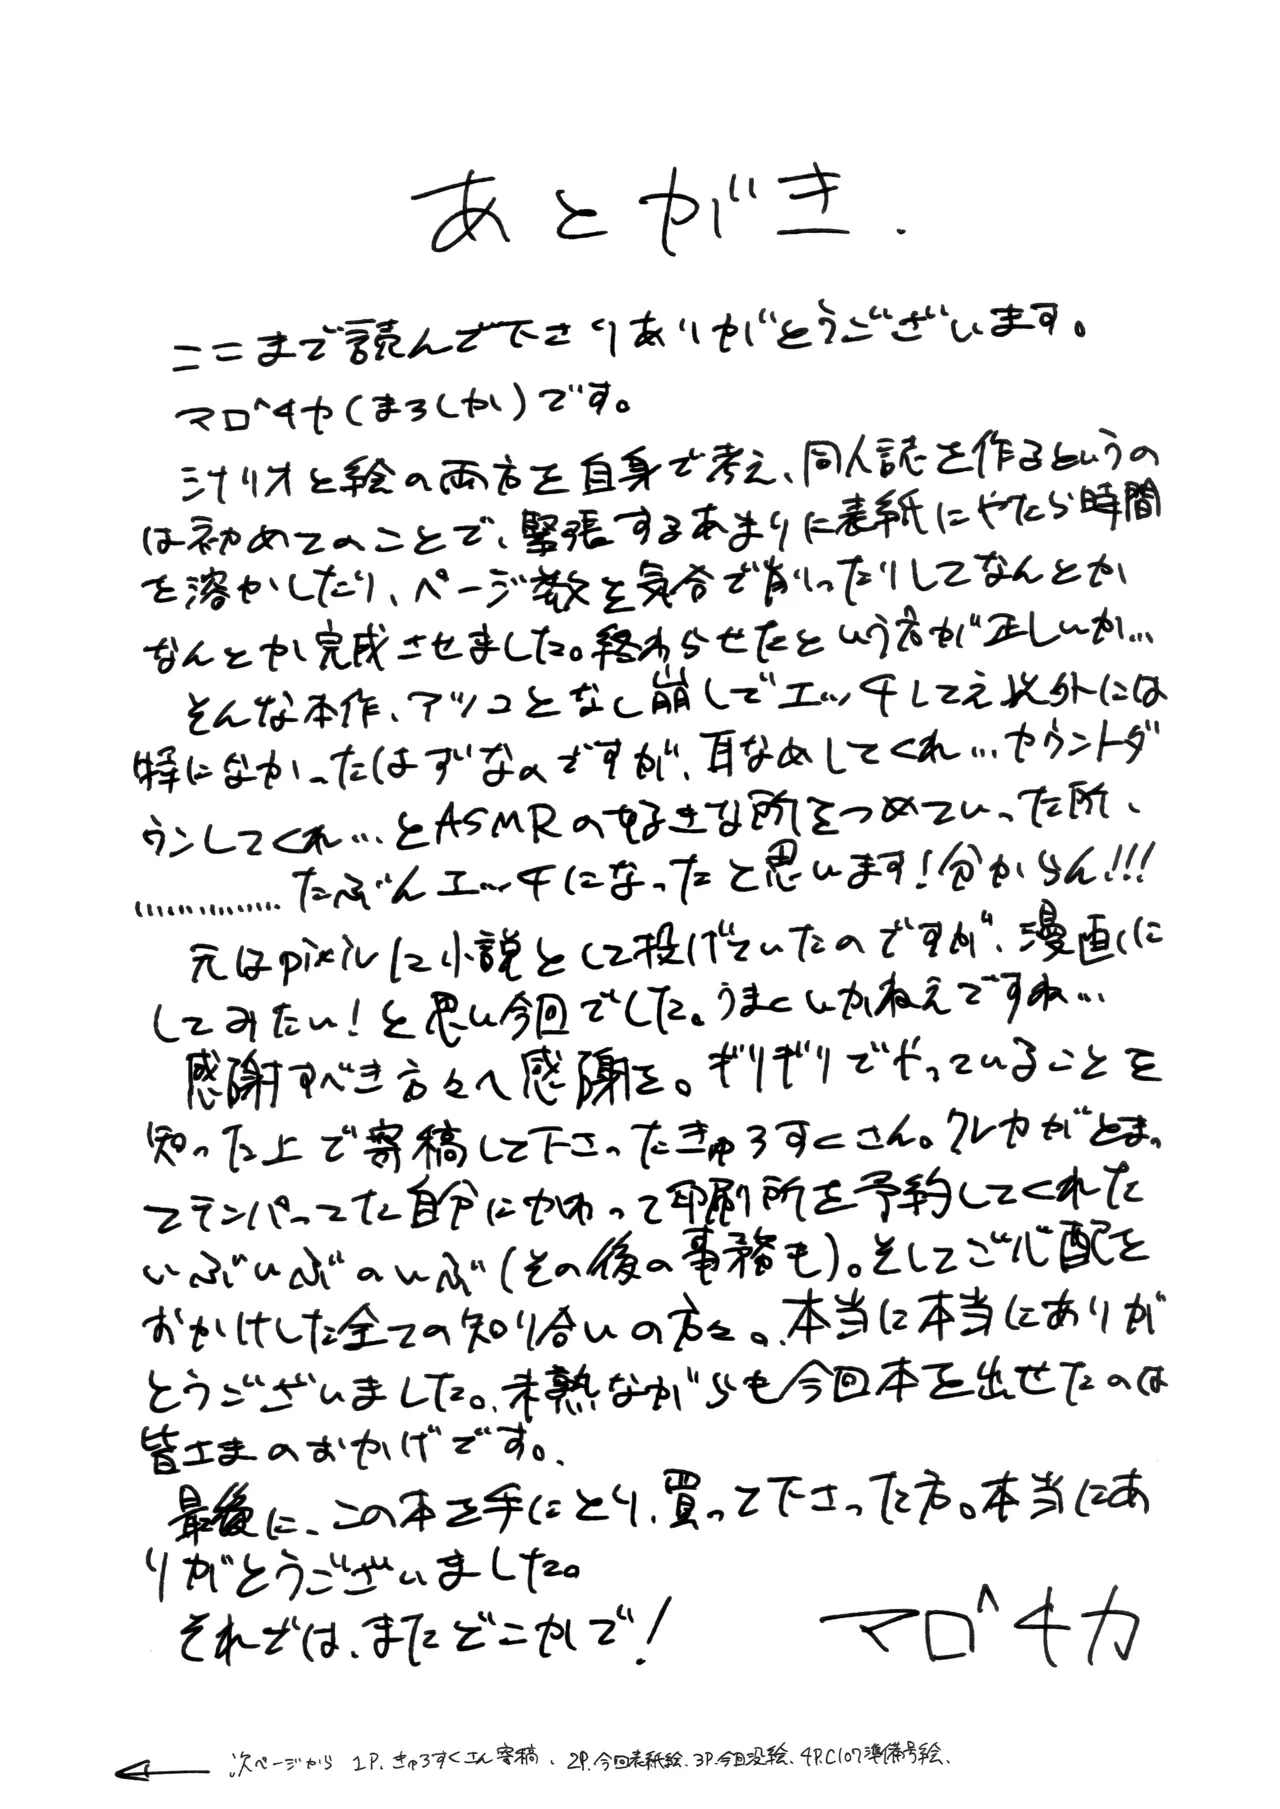 あとがき.
ここまで読んで下さりありがとうございます。
マロ^チカ(まろしか)です。
シナリオと絵の両方を自身で考え、同人誌を作るというの
は初めてのことで、緊張するあまりに表紙にやたら時間
を溶かしたり、ページ数を気合で削ったりしてなんとか
なんとか完成させました。終わらせたという方が正しいか…
そんな本作、アツコとなし崩しでエッチしてえ以外には
特になかったはずなのですが、耳なめしてくれ…カウントダ
ウンしてくれ…とASMRの好きな所をつめていった所、
…………たぶんエッチになったと思います!分からん!!!
元はpixivに小説として投げていたのですが、漫画に
してみたい!と思い今回でした。うまくいかねえですね…
感謝すべき方々へ感謝を。ギリギリでやっていることを
知った上で寄稿して下さったきゅろすくさん。クレカがとまっ
てテンパってた自分にかわって印刷所を予約してくれた
いぶいぶのいぶ(その後の事務も)。そしてご心配を
おかけした全ての知り合いの方々。本当に本当にありが
とうございました。未熟ながらも今回本を出せたのは
皆さまのおかげです。
最後に、この本を手にとり、買って下さった方。本当にあ
りがとうございました。
それでは、またどこかで!
マロ^チカ
次ページから 1P.きゅろすくさん寄稿、2P.今回表紙絵、3P.今回没絵、4P.C107準備号絵、